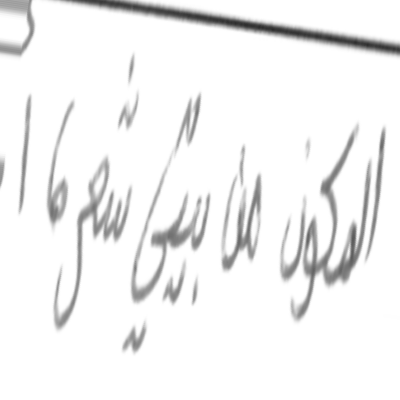 المكون من بيتي شعر ما